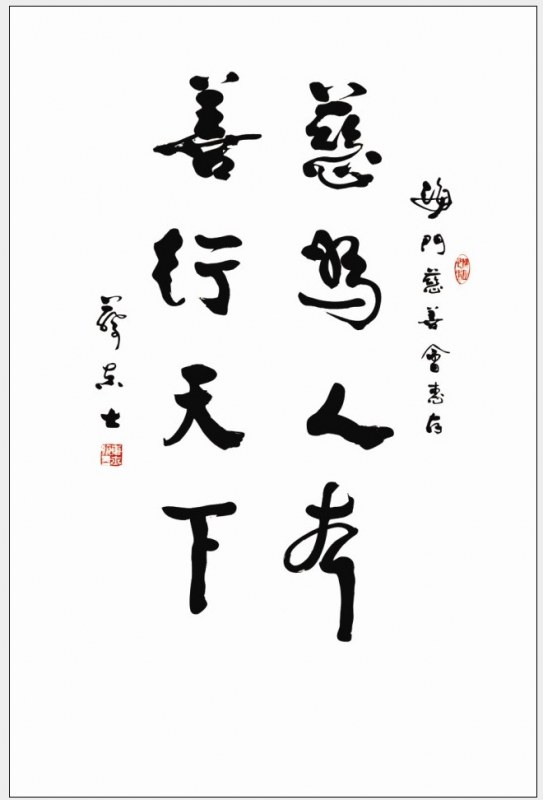 海門慈善會惠存
慈為人本
善行天下
蔡东士